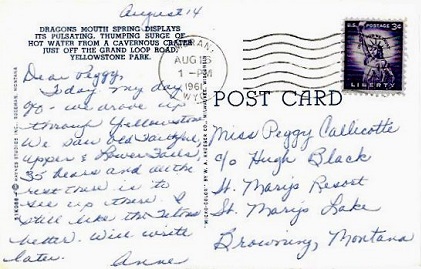 August 14
DRAGONS MOUTH SPRING DISPLAYS
ITS PULSATING, THUMPING SURGE OF
HOT WATER FROM A CAVERNOUS CRATER
JUST OFF THE GRAND LOOP ROAD,
YELLOWSTONE PARK.
Dear Peggy,
Today my day
off - we drove up
through Yellowstone
We saw Old Faithful,
Upper & Lower Falls,
35 bears and all the
rest there is to
see up there. I
still like the Tetons
better. Will write
later.
Anne
AUG 15
1 - PM
1961
WYO.
U.S. POSTAGE
3¢
LIBERTY
POST CARD
Miss Peggy Callicotte
c/o Hugh Black
St. Mary's Resort
St. Mary's Lake
Browning, Montana